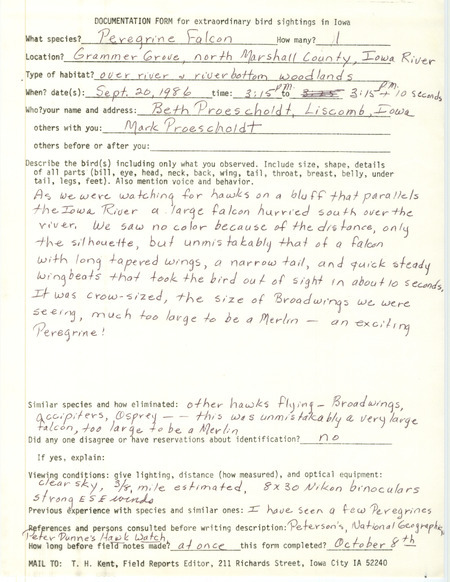 DOCUMENTATION FORM for extraordinary bird sightings in Iowa
What species? Peregrine Falcon How many? 1
Location? Grammer Grove, north Marshall County, Iowa River
Type of habitat? over river & riverbottom woodlands
When? date(s): Sept. 20, 1986 time: 3:15 pm to 3:15 pm + 10 seconds
Who? your name and address: Beth Proescholdt, Liscomb, Iowa
others with you: Mark Proescholdt
others before or after you:
Describe the bird(s) including only what you observed. Include size, shape, details
of all parts (bill, eye, head, neck, back, wing, tail, throat, breast, belly, under
tail, legs, feet). Also mention voice and behavior.
As we were watching for hawks on a bluff that parallels
the Iowa River a large falcon hurried south over the
river. We saw no color because of the distance, only
the silhouette, but unmistakably that of a falcon
with long tapered wings, a narrow tail, and quick steady
wingbeats that took the bird out of sight in about 10 seconds.
It was crow-sized, the size of Broadwings we were
seeing, much too large to be a Merlin — an exciting
Peregrine!
Similar species and how eliminated: other hawks flying — Broadwings,
accipiters, Osprey — — this was unmistakably a very large
falcon, too large to be a Merlin
Did any one disagree or have reservations about identification? no
If yes, explain:
Viewing conditions: give lighting, distance (how measured), and optical equipment:
clear sky, 3/8 mile estimated, 8 x 30 Nikon binoculars
strong ESE winds
Previous experience with species and similar ones: I have seen a few Peregrines
References and persons consulted before writing description: Peterson's, National Geographic,
Peter Dunne's Hawk Watch
How long before field notes made? at once this form completed? October 8th
MAIL TO: T. H. Kent, Field Reports Editor, 211 Richards Street, Iowa City IA 52240